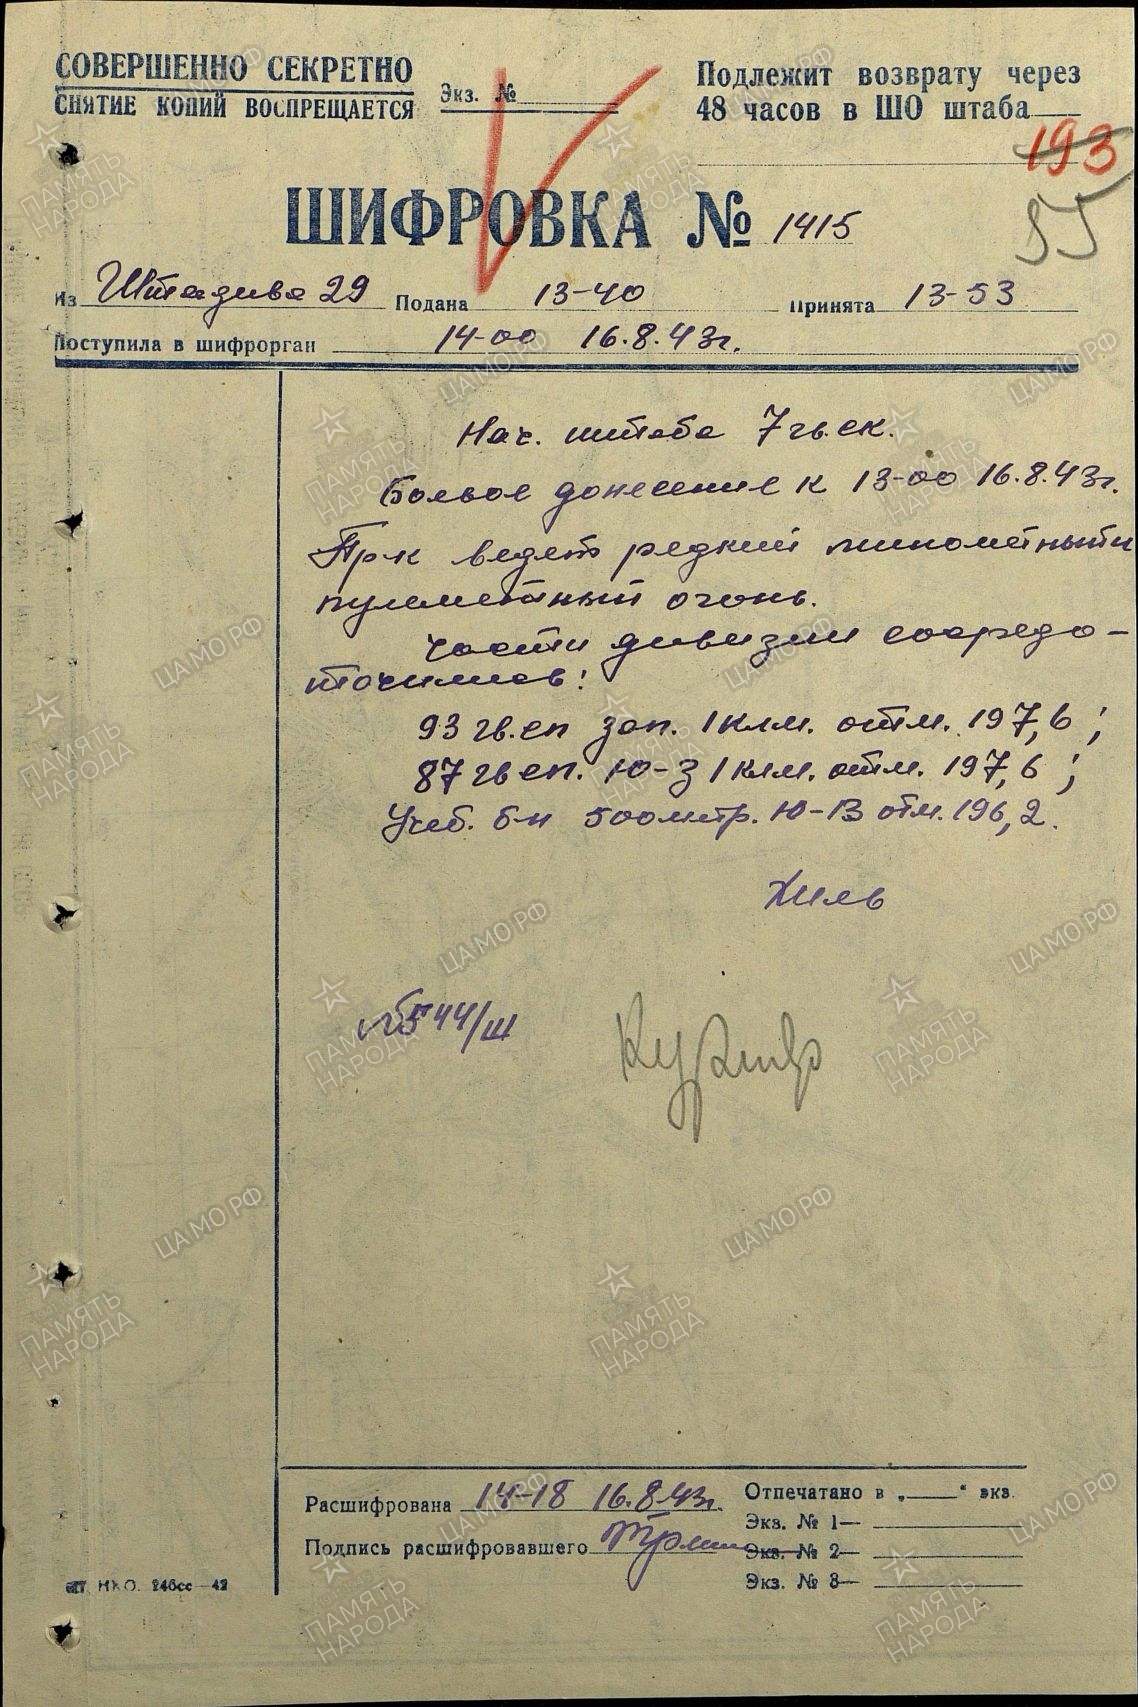 СОВЕРШЕННО СЕКРЕТНО
СНЯТИЕ КОПИЙ ВОСПРЕЩАЕТСЯ
Экз. №
Подлежит возврату через
48 часов в ШО штаба
193
ШИФРОВКА № 1415
Из Штадива 29 Подана 13-40 Принята 13-53
Поступила в шифрорган 14-00 16.8.43г.
Нач. штаба 7 гв. ск.
Боевое донесение к 13-00 16.8.43г.
Пр-к ведет редкий минометный
пулеметный огонь.
Части дивизии сосредо-
точились:
93 гв. сп зап. 1 клм. отм. 197,6;
87 гв сп. Ю-З 1 клм. отм. 197,6;
Учеб. б-н 500 мтр. Ю-В отм. 196,2.
Хиль
№544/ш
Расшифрована 14-18 16.8.43г.
Подпись расшифровавшего
Отпечатано в „ “ экз.
Экз. № 1—
Экз. № 2—
Экз. № 3—
НКО. 246сс—42
ПАМЯТЬ НАРОДА
ЦАМО.РФ